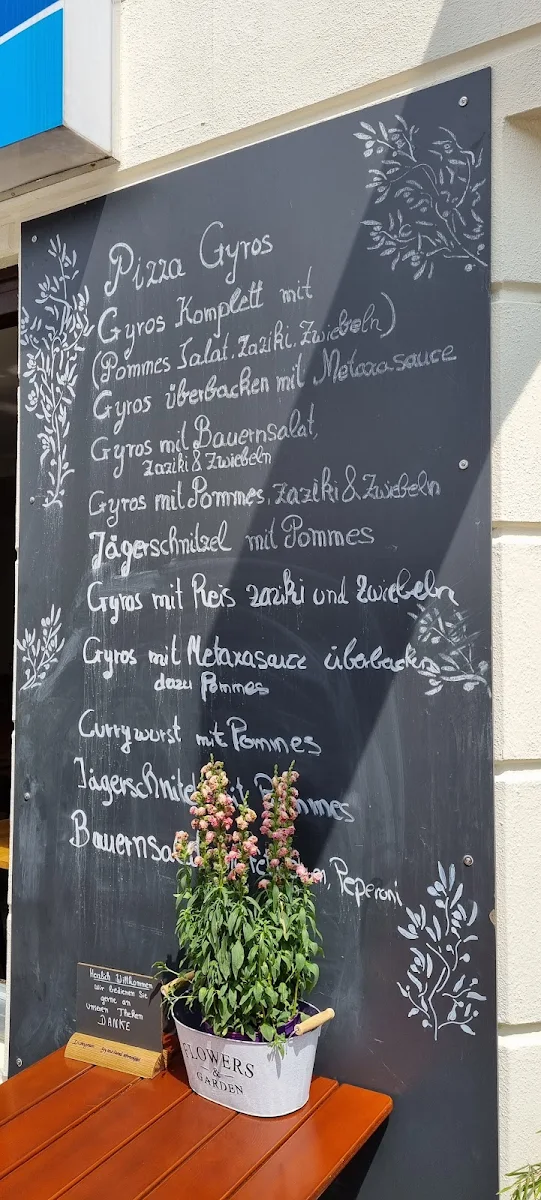 Pizza Gyros
Gyros Komplett mit
(Pommes Salat, Zaziki, Zwiebeln)
Gyros überbacken mit Metaxasauce
Gyros mit Bauernsalat,
Zaziki & Zwiebeln
Gyros mit Pommes, Zaziki & Zwiebeln
Jägerschnitzel mit Pommes
Gyros mit Reis zaziki und Zwiebeln
Gyros mit Metaxasauce überbacken
dazu Pommes
Currywurst mit Pommes
Jägerschnitzel mit Pommes
Bauernsalat Peperoni
Herzlich Willkommen
wir bedienen Sie
gerne an
unseren Theken
DANKE
FLOWERS
&
GARDEN